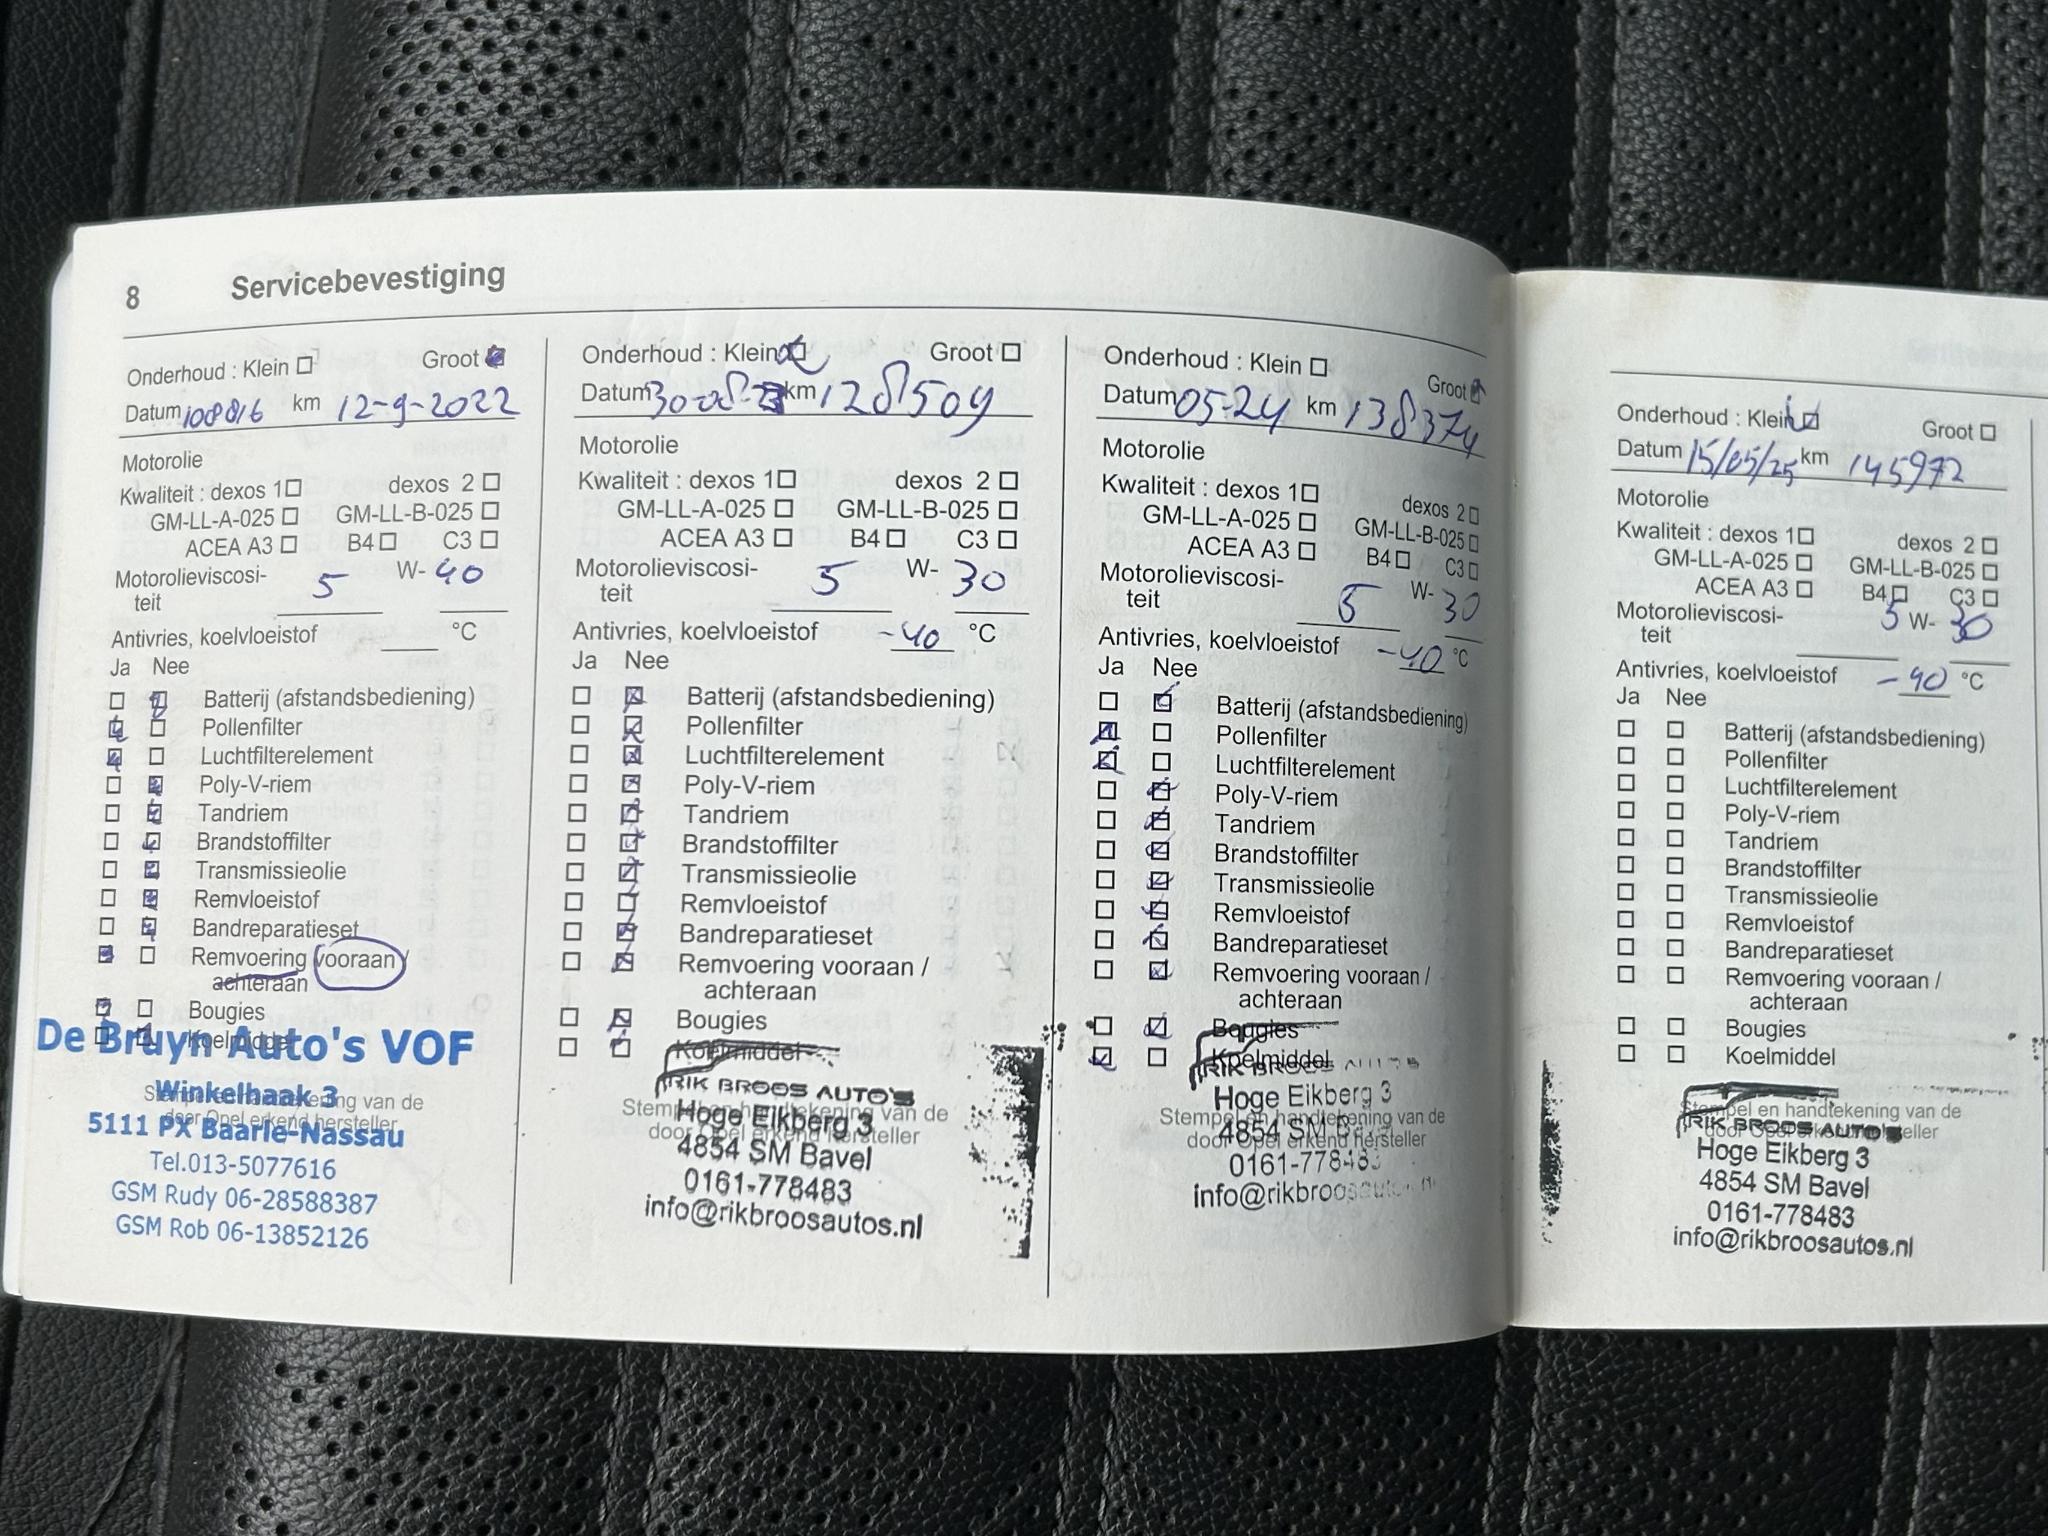 8 Servicebevestiging
Onderhoud : Klein Groot
Datum 108816 km 12-9-2022
Motorolie
Kwaliteit : dexos 1 dexos 2
GM-LL-A-025 GM-LL-B-025
ACEA A3 B4 C3
Motorolieviscosi- 5 W- 40
teit
Antivries, koelvloeistof °C
Ja Nee
Batterij (afstandsbediening)
Pollenfilter
Luchtfilterelement
Poly-V-riem
Tandriem
Brandstoffilter
Transmissieolie
Remvloeistof
Bandreparatieset
Remvoering vooraan /
achteraan
Bougies
Koelmiddel
De Bruyn Auto's VOF
Winkelhaak 3
Stempel en handtekening van de
door Opel erkend hersteller
5111 PX Baarle-Nassau
Tel.013-5077616
GSM Rudy 06-28588387
GSM Rob 06-13852126
Onderhoud : Klein Groot
Datum 30-08-23 km 128509
Motorolie
Kwaliteit : dexos 1 dexos 2
GM-LL-A-025 GM-LL-B-025
ACEA A3 B4 C3
Motorolieviscosi- 5 W- 30
teit
Antivries, koelvloeistof -40 °C
Ja Nee
Batterij (afstandsbediening)
Pollenfilter
Luchtfilterelement
Poly-V-riem
Tandriem
Brandstoffilter
Transmissieolie
Remvloeistof
Bandreparatieset
Remvoering vooraan /
achteraan
Bougies
Koelmiddel
RIK BROOS AUTO'S
Stempel en handtekening van de
Hoge Eikberg 3
door Opel erkend hersteller
4854 SM Bavel
0161-778483
info@rikbroosautos.nl
Onderhoud : Klein Groot
Datum 05-24 km 138374
Motorolie
Kwaliteit : dexos 1 dexos 2
GM-LL-A-025 GM-LL-B-025
ACEA A3 B4 C3
Motorolieviscosi- 5 W- 30
teit
Antivries, koelvloeistof -40 °C
Ja Nee
Batterij (afstandsbediening)
Pollenfilter
Luchtfilterelement
Poly-V-riem
Tandriem
Brandstoffilter
Transmissieolie
Remvloeistof
Bandreparatieset
Remvoering vooraan /
achteraan
Bougies
Koelmiddel
RIK BROOS AUTO'S
Hoge Eikberg 3
Stempel en handtekening van de
4854 SM Bavel
door Opel erkend hersteller
0161-778483
info@rikbroosautos.nl
Onderhoud : Klein Groot
Datum 15/05/25 km 145972
Motorolie
Kwaliteit : dexos 1 dexos 2
GM-LL-A-025 GM-LL-B-025
ACEA A3 B4 C3
Motorolieviscosi- 5 W- 30
teit
Antivries, koelvloeistof -40 °C
Ja Nee
Batterij (afstandsbediening)
Pollenfilter
Luchtfilterelement
Poly-V-riem
Tandriem
Brandstoffilter
Transmissieolie
Remvloeistof
Bandreparatieset
Remvoering vooraan /
achteraan
Bougies
Koelmiddel
Stempel en handtekening van de
door Opel erkend hersteller
RIK BROOS AUTO'S
Hoge Eikberg 3
4854 SM Bavel
0161-778483
info@rikbroosautos.nl